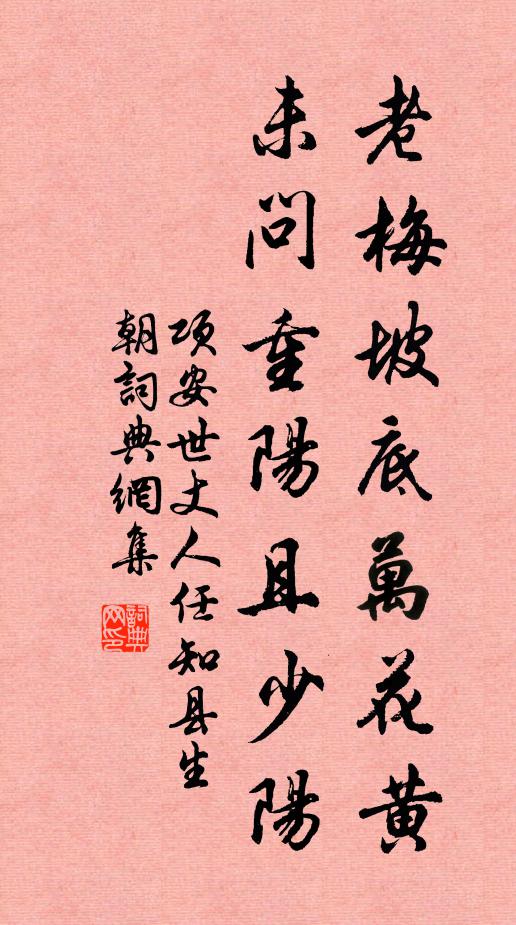 老梅坡底萬花黄
未問重陽且少陽
項安世丈人任知县生
朝詞典網集
詞典网印